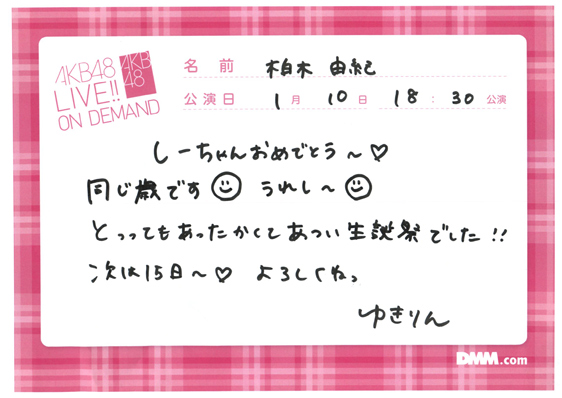 AKB48
LIVE!!
ON DEMAND
AKB
48
名前 柏木 由紀
公演日 1月 10日 18:30 公演
しーちゃんおめでとう〜♡
同じ歳です☺ うれし〜☺
とってもあったかくてあつい生誕祭でした!!
次は15日〜♡ よろしくねっ
ゆきりん
DMM.com